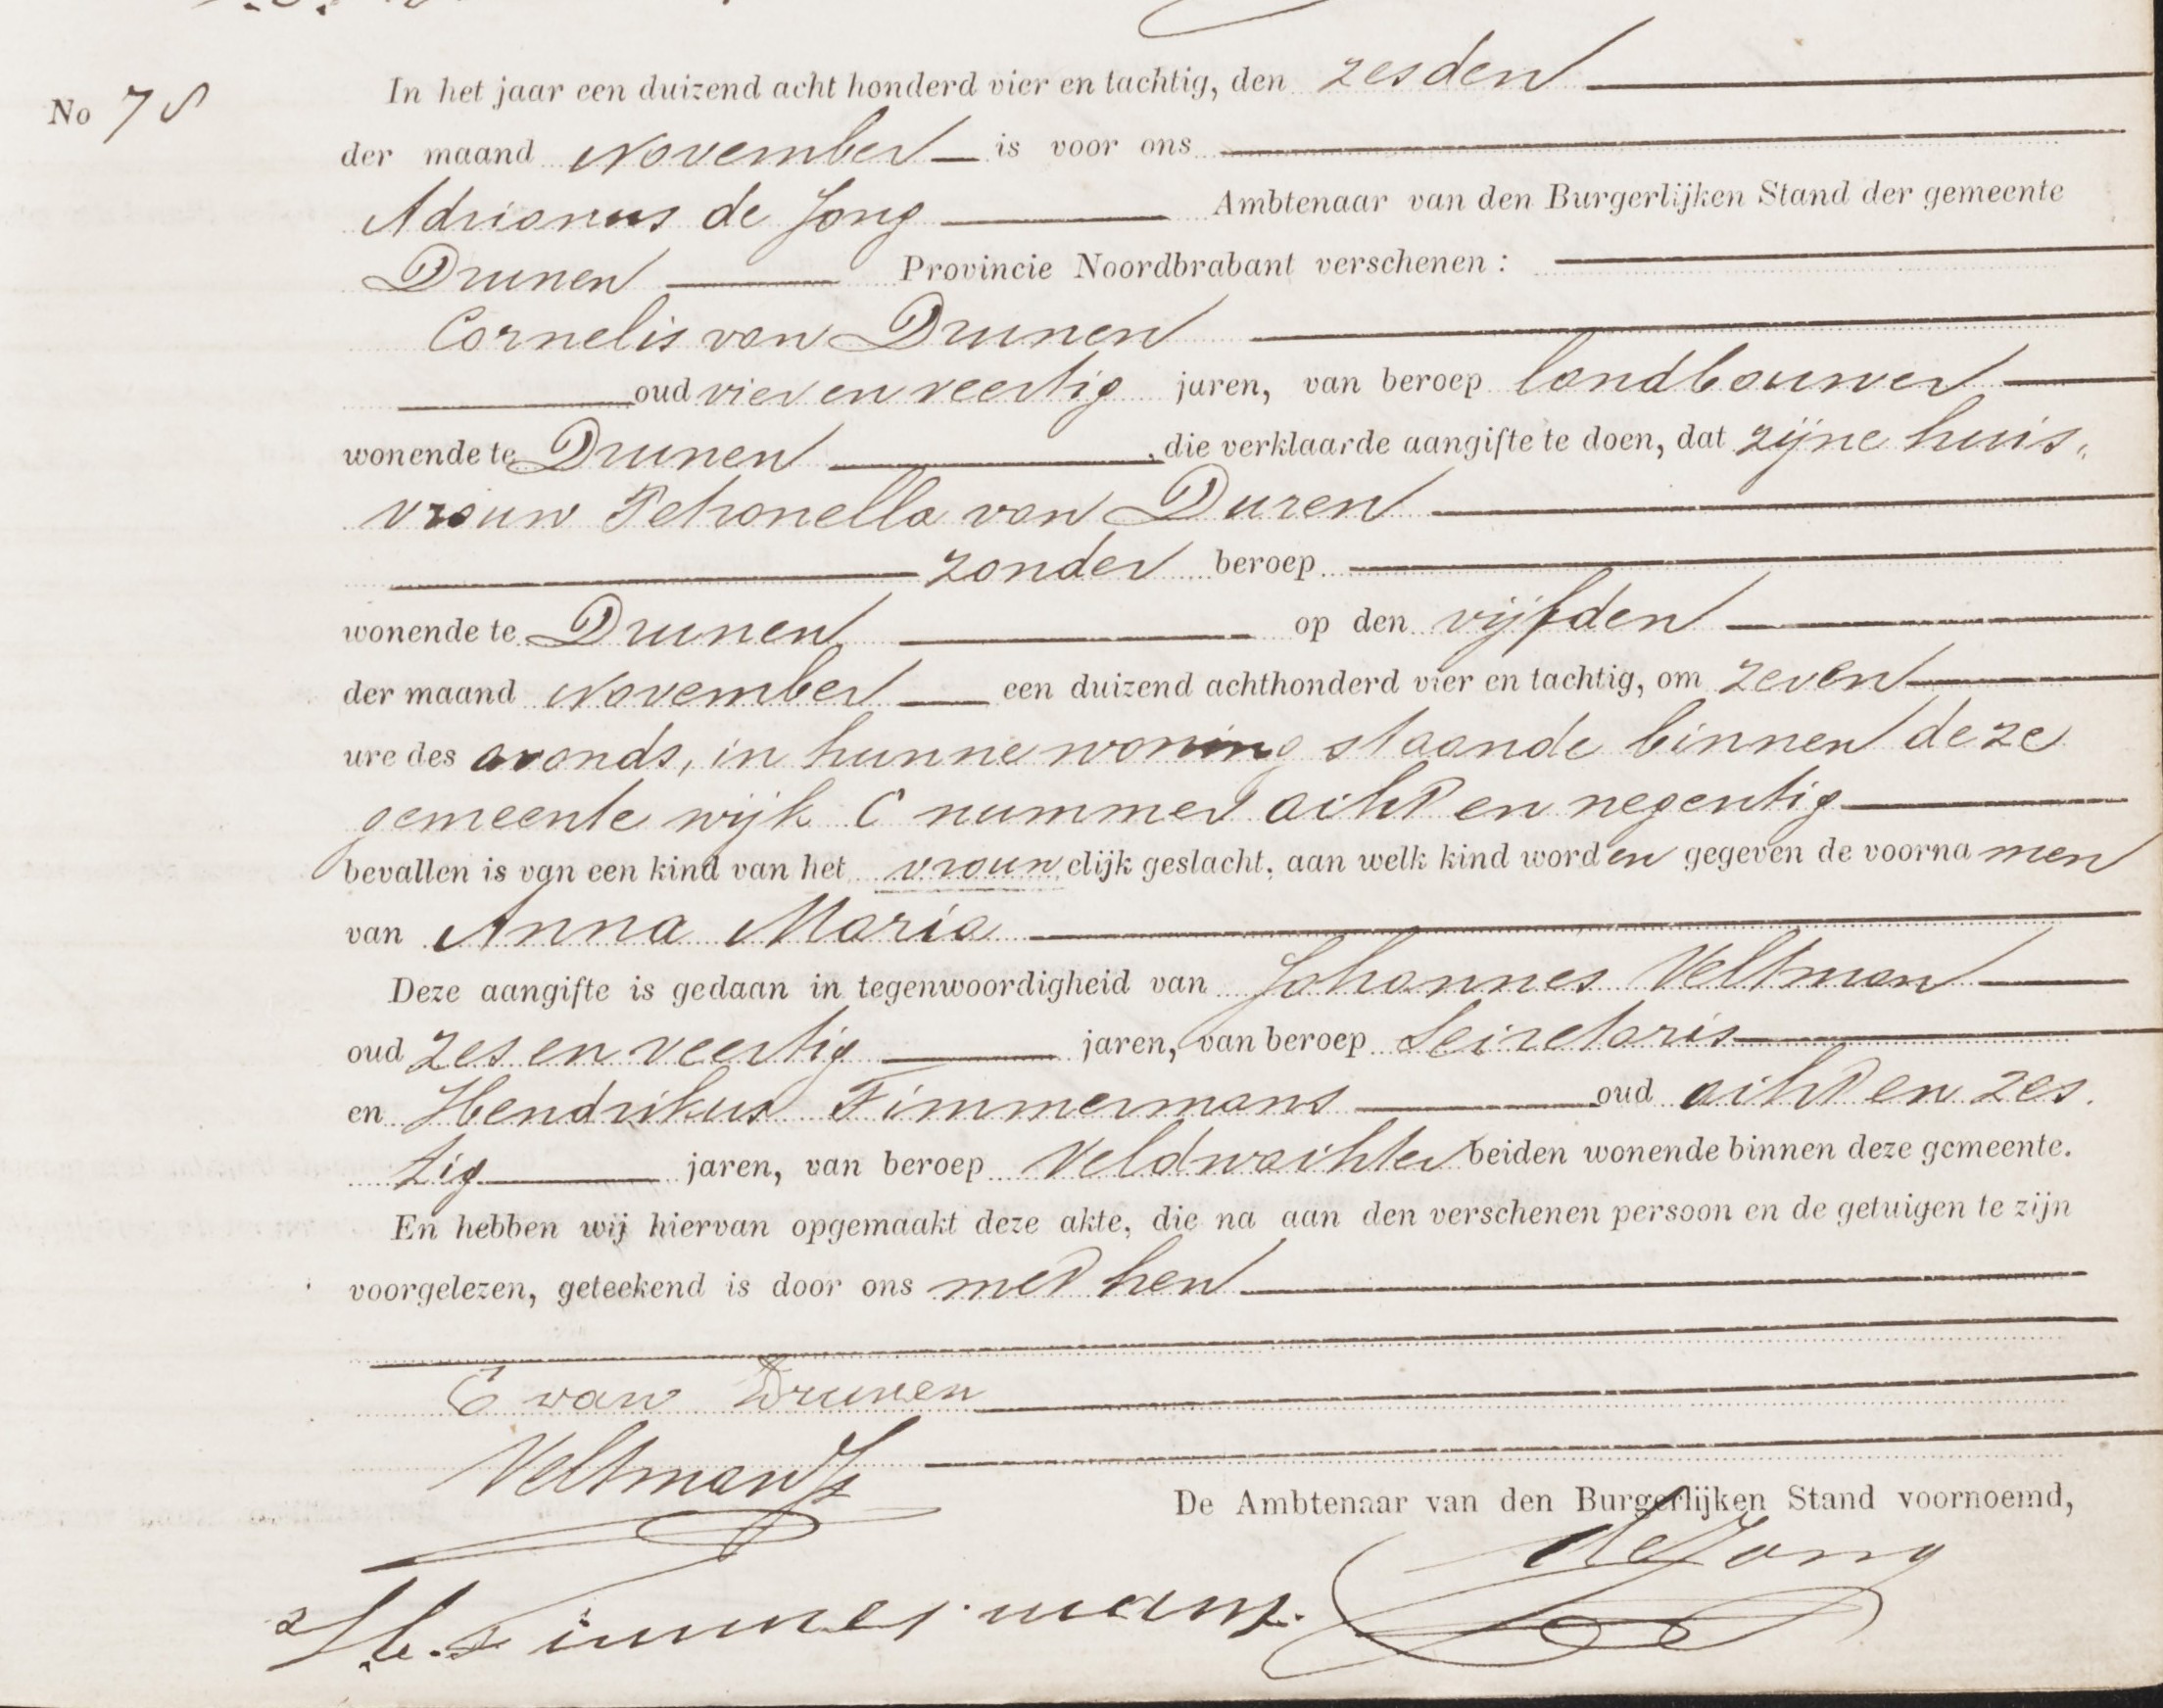 No 78
In het jaar een duizend acht honderd vier en tachtig, den zesden
der maand November is voor ons
Adrianus de Jong Ambtenaar van den Burgerlijken Stand der gemeente
Drunen Provincie Noordbrabant verschenen :
Cornelis van Drunen
oud vier en veertig jaren, van beroep landbouwer
wonende te Drunen, die verklaarde aangifte te doen, dat zijne huis„
vrouw Petronella van Duren
zonder beroep
wonende te Drunen op den vijfden
der maand November een duizend achthonderd vier en tachtig, om zeven
ure des avonds, in hunne woning staande binnen deze
gemeente wijk C nummer acht en negentig
bevallen is van een kind van het vrouwelijk geslacht, aan welk kind worden gegeven de voornamen
van Anna Maria
Deze aangifte is gedaan in tegenwoordigheid van Johannes Veltman
oud zes en veertig jaren, van beroep Secretaris
en Hendrikus Timmermans oud acht en zes.
tig jaren, van beroep Veldwachter beiden wonende binnen deze gemeente.
En hebben wij hiervan opgemaakt deze akte, die na aan den verschenen persoon en de getuigen te zijn
voorgelezen, geteekend is door ons met hen
C van Drunen
Veltman
De Ambtenaar van den Burgerlijken Stand voornoemd,
de Jong
H. Timmermans.